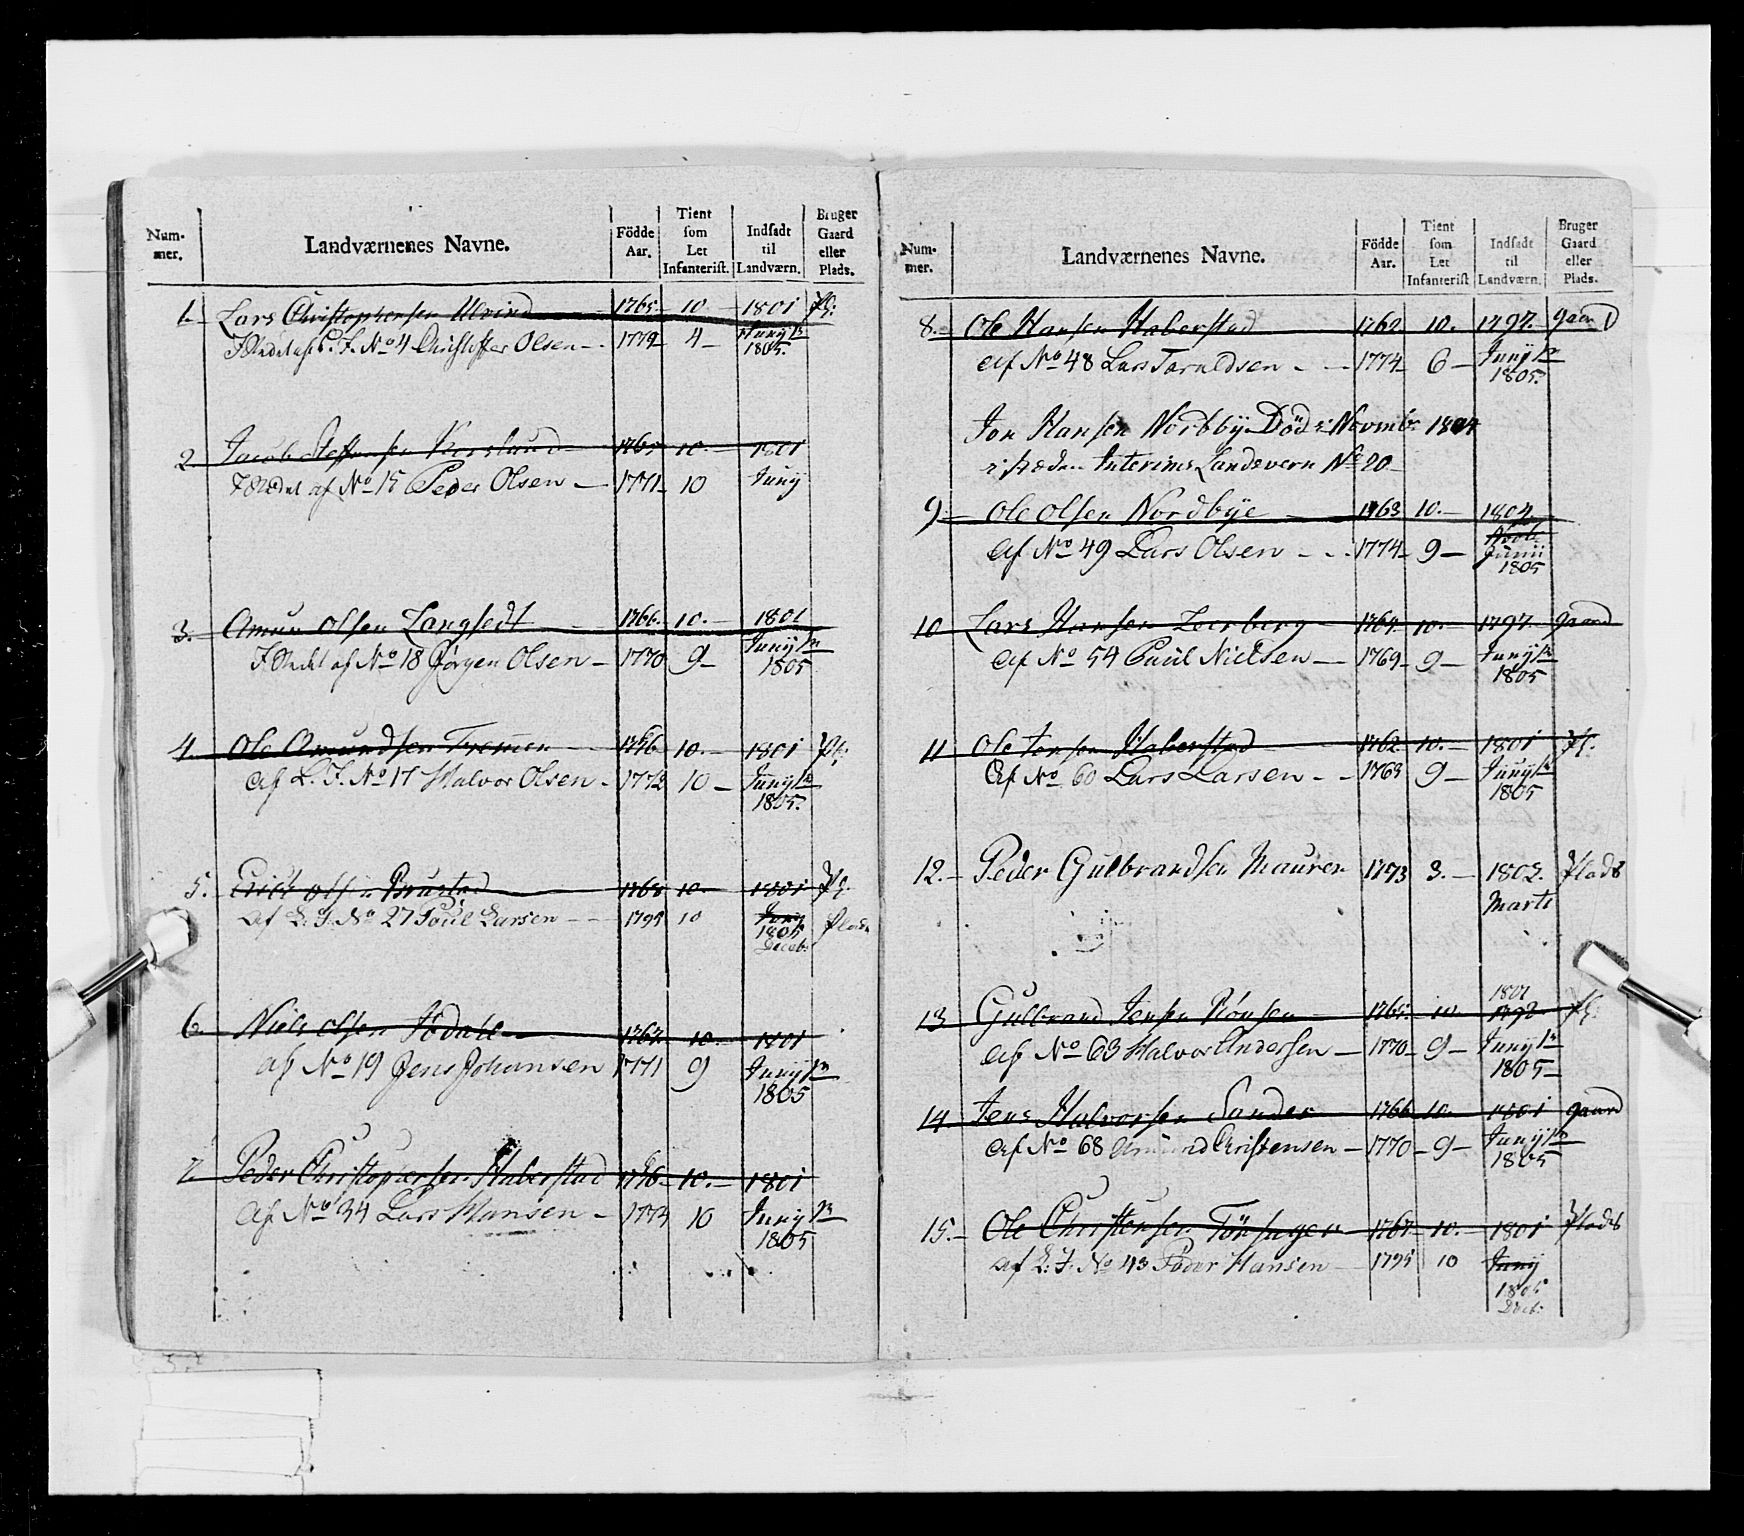 Num-
mer.
Landværnenes Navne.
Födde
Aar.
Tient
som
Let
Infanterist.
Indsadt
til
Landværn.
Bruger
Gaard
eller
Plads.
1. Lars Christophersen Ulvind 1765. 10. 1801 Pl:
No 4 Christoffer Olsen 1779 4 Junij
1805.
2. Jacob 1765 10. 1801
af No 15 Peder Olsen 1771 10 Junij
3. Amun Olsen Langsedt 1766. 10. 1801
af No 18 Jørgen Olsen 1770 9 Junij
1805
4. Ole Amundsen 10. 1801 Pl:
af L. I. No 17 Halvor Olsen 1772 10 Junij
1805.
5. Erich Olsen Brustad 1768 10. 1801 Pl.
af L. I. No 27 Poul Larsen 1795 10 Junij
1805 Plads
Decebr
6. Niels Olsen 1767. 10. 1801
af No 19 Jens Johansen 1771 9 Junij
1805
7. Peder Christophersen Haberstad 10. 1801
af No 34 Lars Hansen 1773 10 Junij
1805
Num-
mer.
Landværnenes Navne.
Födde
Aar.
Tient
som
Let
Infanterist
Indsadt
til
Landværn.
Bruger
Gaard
eller
Plads.
8. Ole Hansen Haberstad 1762 10. 1797. gaard
af No 48 Lars Taraldsen 1774 6 Junij
1805.
Jon Hansen Nordbÿ Död i Novmbr 1804
Interims Landevern No 20
9. Ole Olsen Nordbÿe 1763 10. 1804.
af No 49 Lars Olsen 1774 9 Junij
1805
10 Lars Hansen Leerberg 1764 10. 1797. gaard
af No 54 Paul Nielsen 1769 9 Junij
1805
11 Ole Jonsen Haberstad 1762 10. 1801 Pl.
af No 60 Lars Larsen 1769 9 Junij
1805
12. Peder Gulbrandsen Mauren 1773 3. 1803. Plads
Marts
1801
13 Gulbrand Jensen Rönsen 1765. 10. 1792 Pl:
af No 63 Halvor Andersen 1770 9 Junij
1805
14. Jens Halvorsen Sander 1766 10. 1801 gaard
af No 68 Amund Christensen 1770 9 Junij
1805
15. Ole Christensen 1767 10. 1801 Plads
af L. I. No 43 Peder Hansen 1795 10 Junij
1805
Decb: